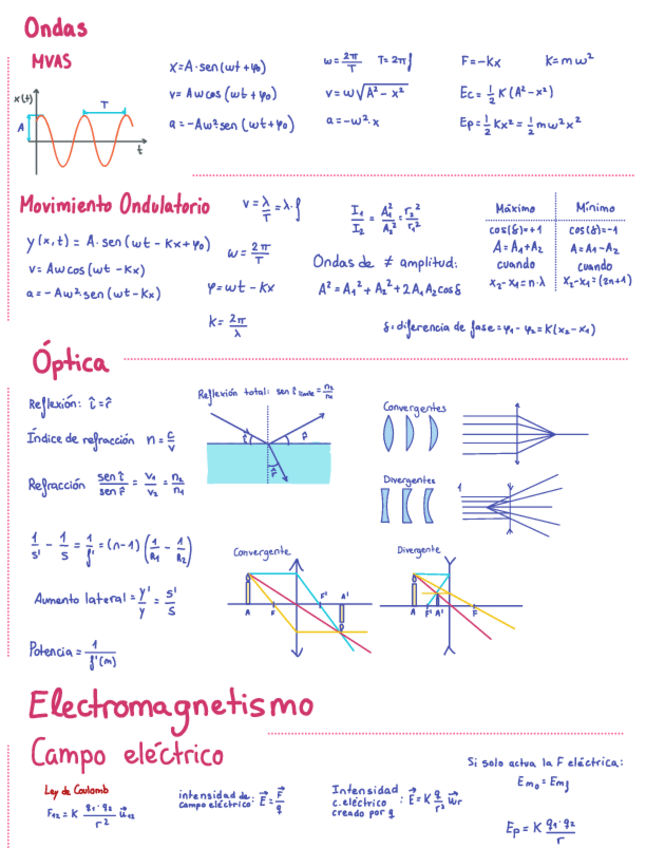 Ondas
MVAS
x(t)
T
A
t
x=A·sen(wt+φ₀)
v=Awcos(wt+φ₀)
a=-Aw²sen(wt+φ₀)
w=2π/T T=2πf
v=w√(A²-x²)
a=-w²·x
F=-Kx K=mw²
Ec=1/2 K(A²-x²)
Ep=1/2 Kx²=1/2 mw²x²
Movimiento Ondulatorio
y(x,t)=A·sen(wt-Kx+φ₀)
v=Awcos(wt-Kx)
a=-Aw²·sen(wt-Kx)
v=λ/T=λ·f
w=2π/T
φ=wt-Kx
K=2π/λ
I₁/I₂=A₁²/A₂²=r₂²/r₁²
Ondas de ≠ amplitud:
A²=A₁²+A₂²+2A₁A₂cosδ
Máximo Mínimo
cos(δ)=+1 cos(δ)=-1
A=A₁+A₂ A=A₁-A₂
cuando cuando
x₂-x₁=n·λ x₂-x₁=(2n+1)
δ:diferencia de fase=φ₁-φ₂=K(x₂-x₁)
Óptica
Reflexión: î=r̂
Índice de refracción n=c/v
Refracción sen î/sen r̂=v₁/v₂=n₂/n₁
1/s'-1/s=1/f'=(n-1)(1/R₁-1/R₂)
Aumento lateral=y'/y=s'/s
Potencia=1/f'(m)
Reflexión total: sen î límite=n₂/n₁
Convergentes
Divergentes
Convergente
A F F' A'
Divergente
A F' A' F
Electromagnetismo
Campo eléctrico
Ley de Coulomb
F₁₂=K q₁·q₂/r² u⃗₁₂
intensidad de
campo eléctrico: E⃗=F⃗/q
Intensidad
c.eléctrico : E⃗=K q/r² u⃗r
creado por q
Si solo actua la F eléctrica:
Em₀=Emf
Ep=K q₁·q₂/r